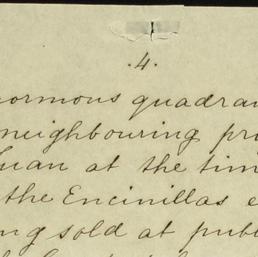 .4.
ormous quadran
neighbouring pr
uan at the tim
the Encinillas e
ng sold at publ